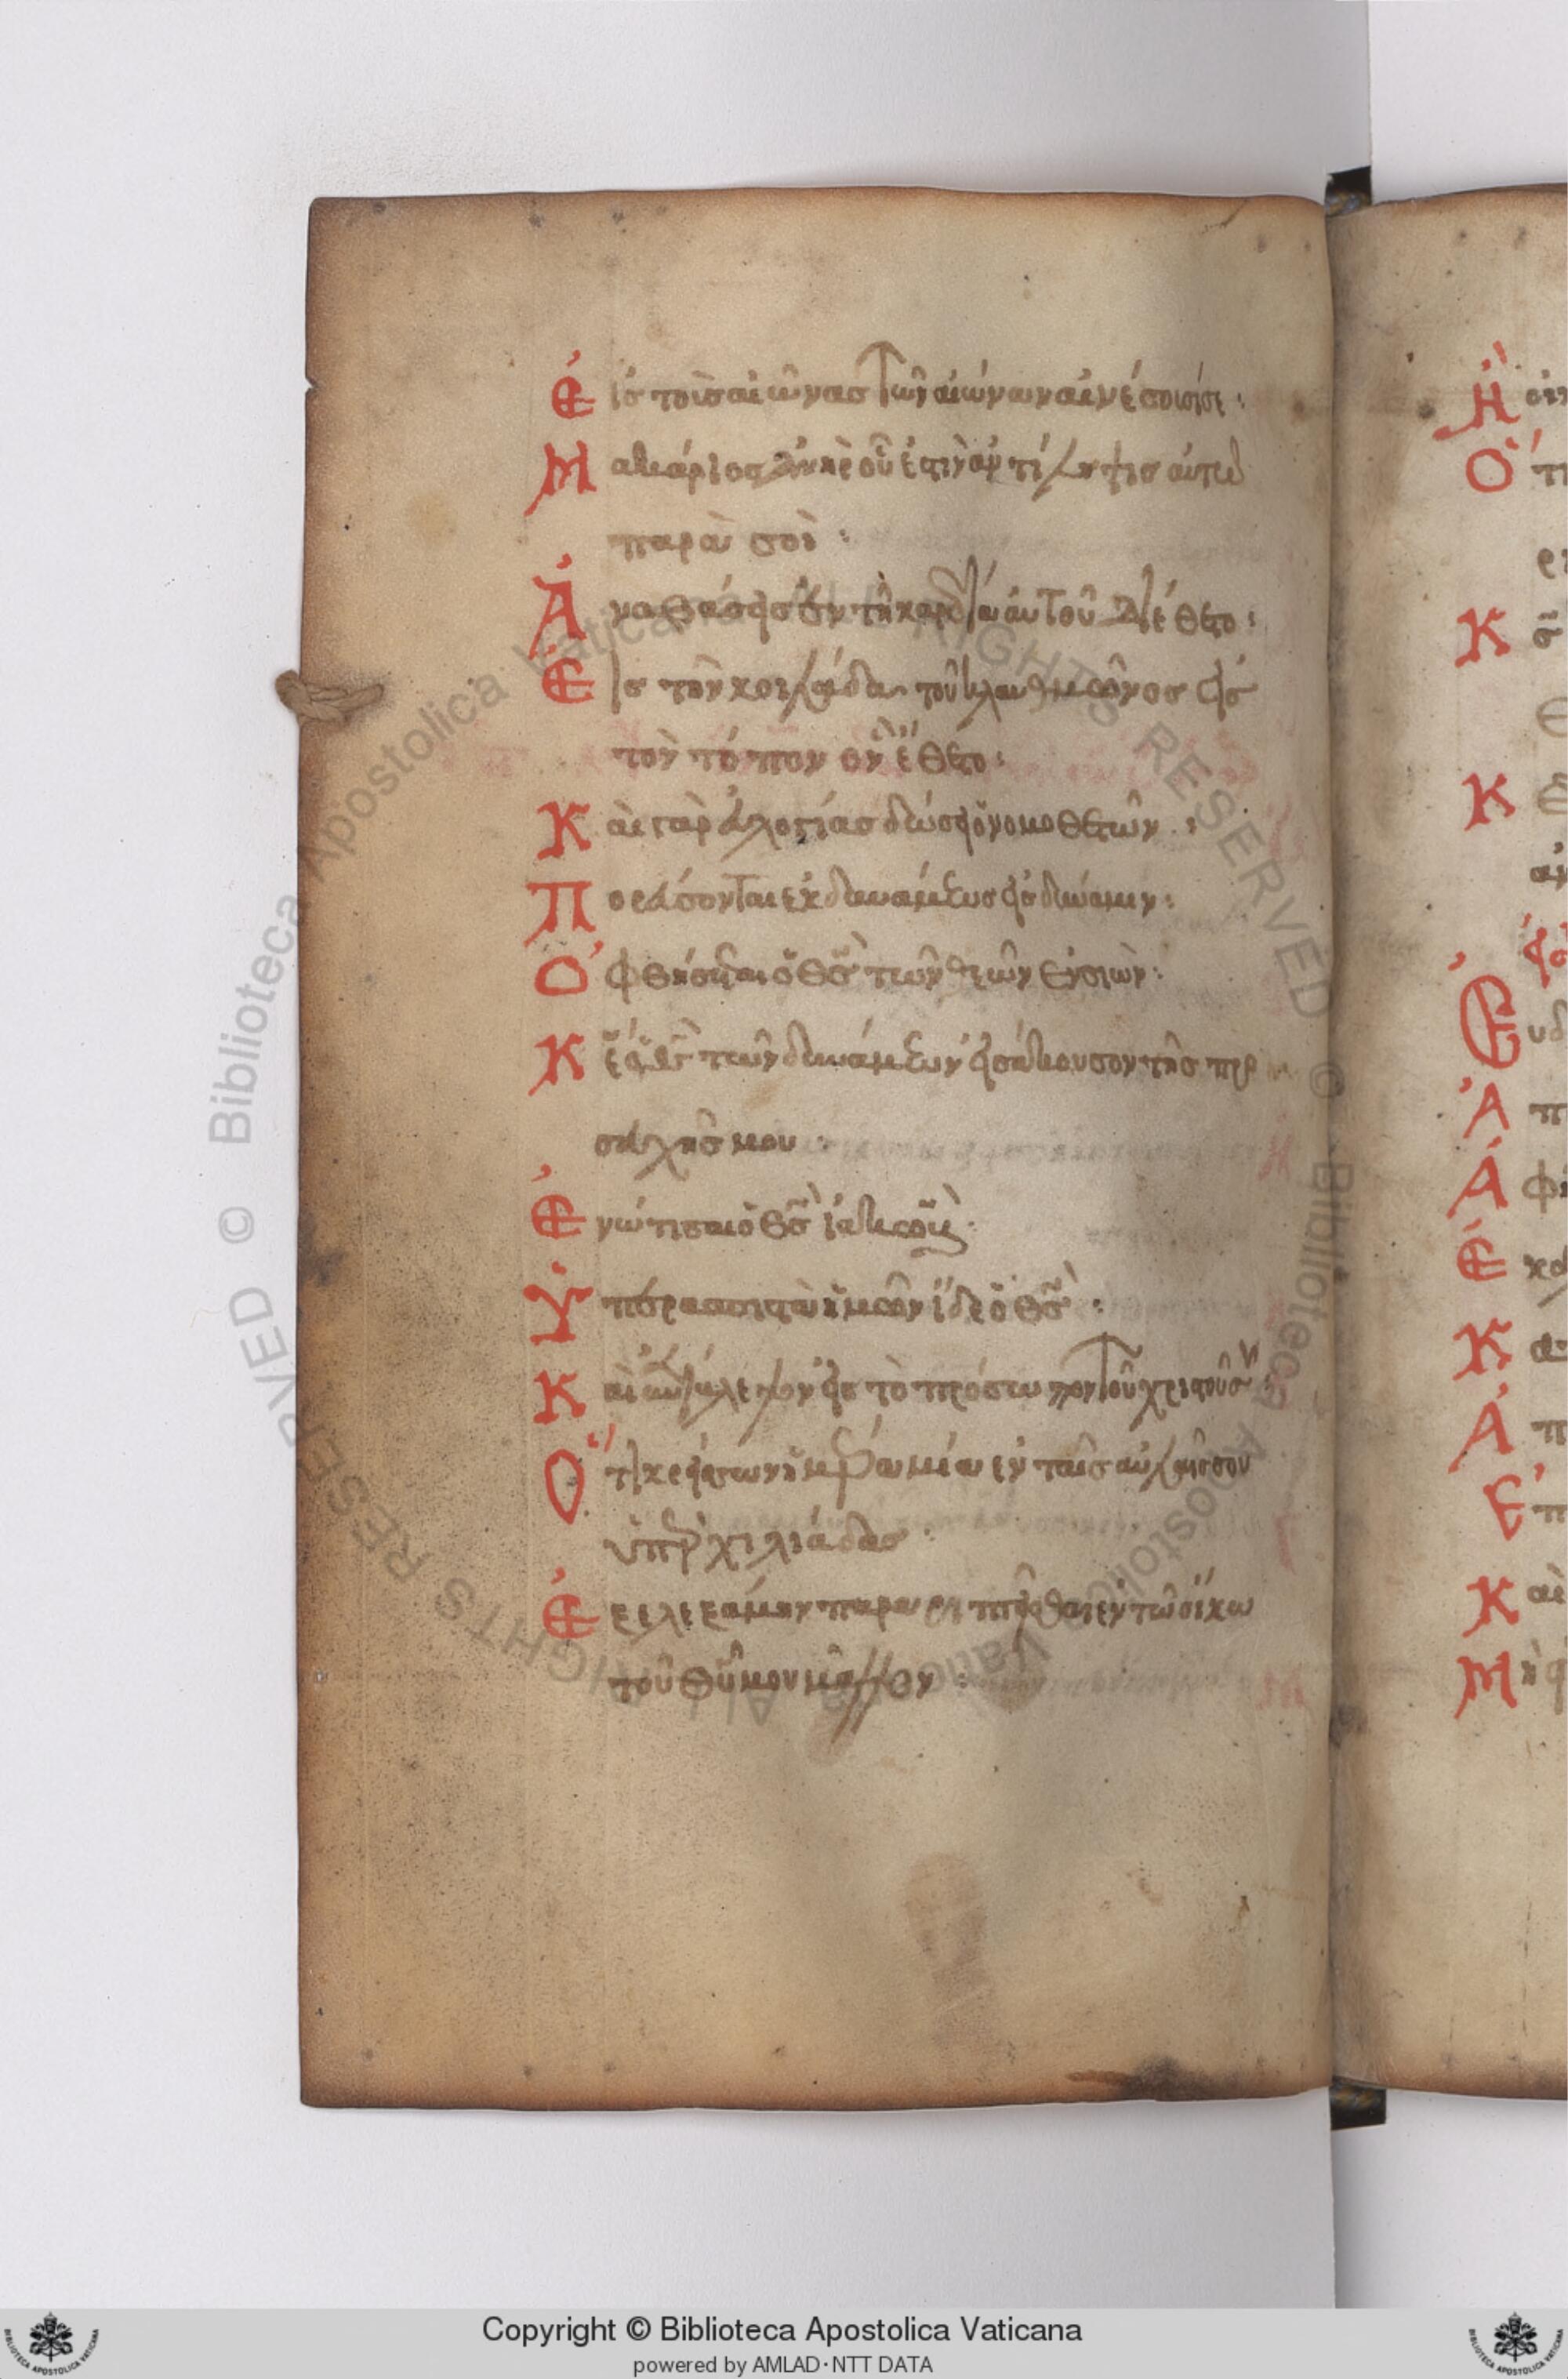 Εἰς τοὺς αἰῶνας τῶν αἰώνων αἰνέσουσί σε :
Μακάριος ἀνὴρ οὗ ἐστὶν ἀντίληψις αὐτοῦ
παρὰ σοὶ :
Ἀναβάσεις ἐν τῇ καρδίᾳ αὐτοῦ διέθετο :
Εἰς τὴν κοιλάδα τοῦ κλαυθμῶνος εἰς
τὸν τόπον ὃν ἔθετο :
Καὶ γὰρ εὐλογίας δώσει ὁ νομοθετῶν :
Πορεύσονται ἐκ δυνάμεως εἰς δύναμιν :
Ὀφθήσεται ὁ θς τῶν θεῶν ἐν σιὼν :
Κε ὁ θς τῶν δυνάμεων εἰσάκουσον τῆς προ
σευχῆς μου :
Ἐνώτισαι ὁ θς ἰακώβ :
Ὑπερασπιστὰ ἡμῶν ἴδε ὁ θς :
Καὶ ἐπίβλεψον εἰς τὸ πρόσωπον τοῦ χριστοῦ σου :
Ὅτι κρείσσων ἡμέρα μία ἐν ταῖς αὐλαῖς σου
ὑπὲρ χιλιάδας :
Ἐξελεξάμην παραριπτεῖσθαι ἐν τῷ οἴκῳ
τοῦ θυ μου μᾶλλον :
Copyright © Biblioteca Apostolica Vaticana
powered by AMLAD·NTT DATA